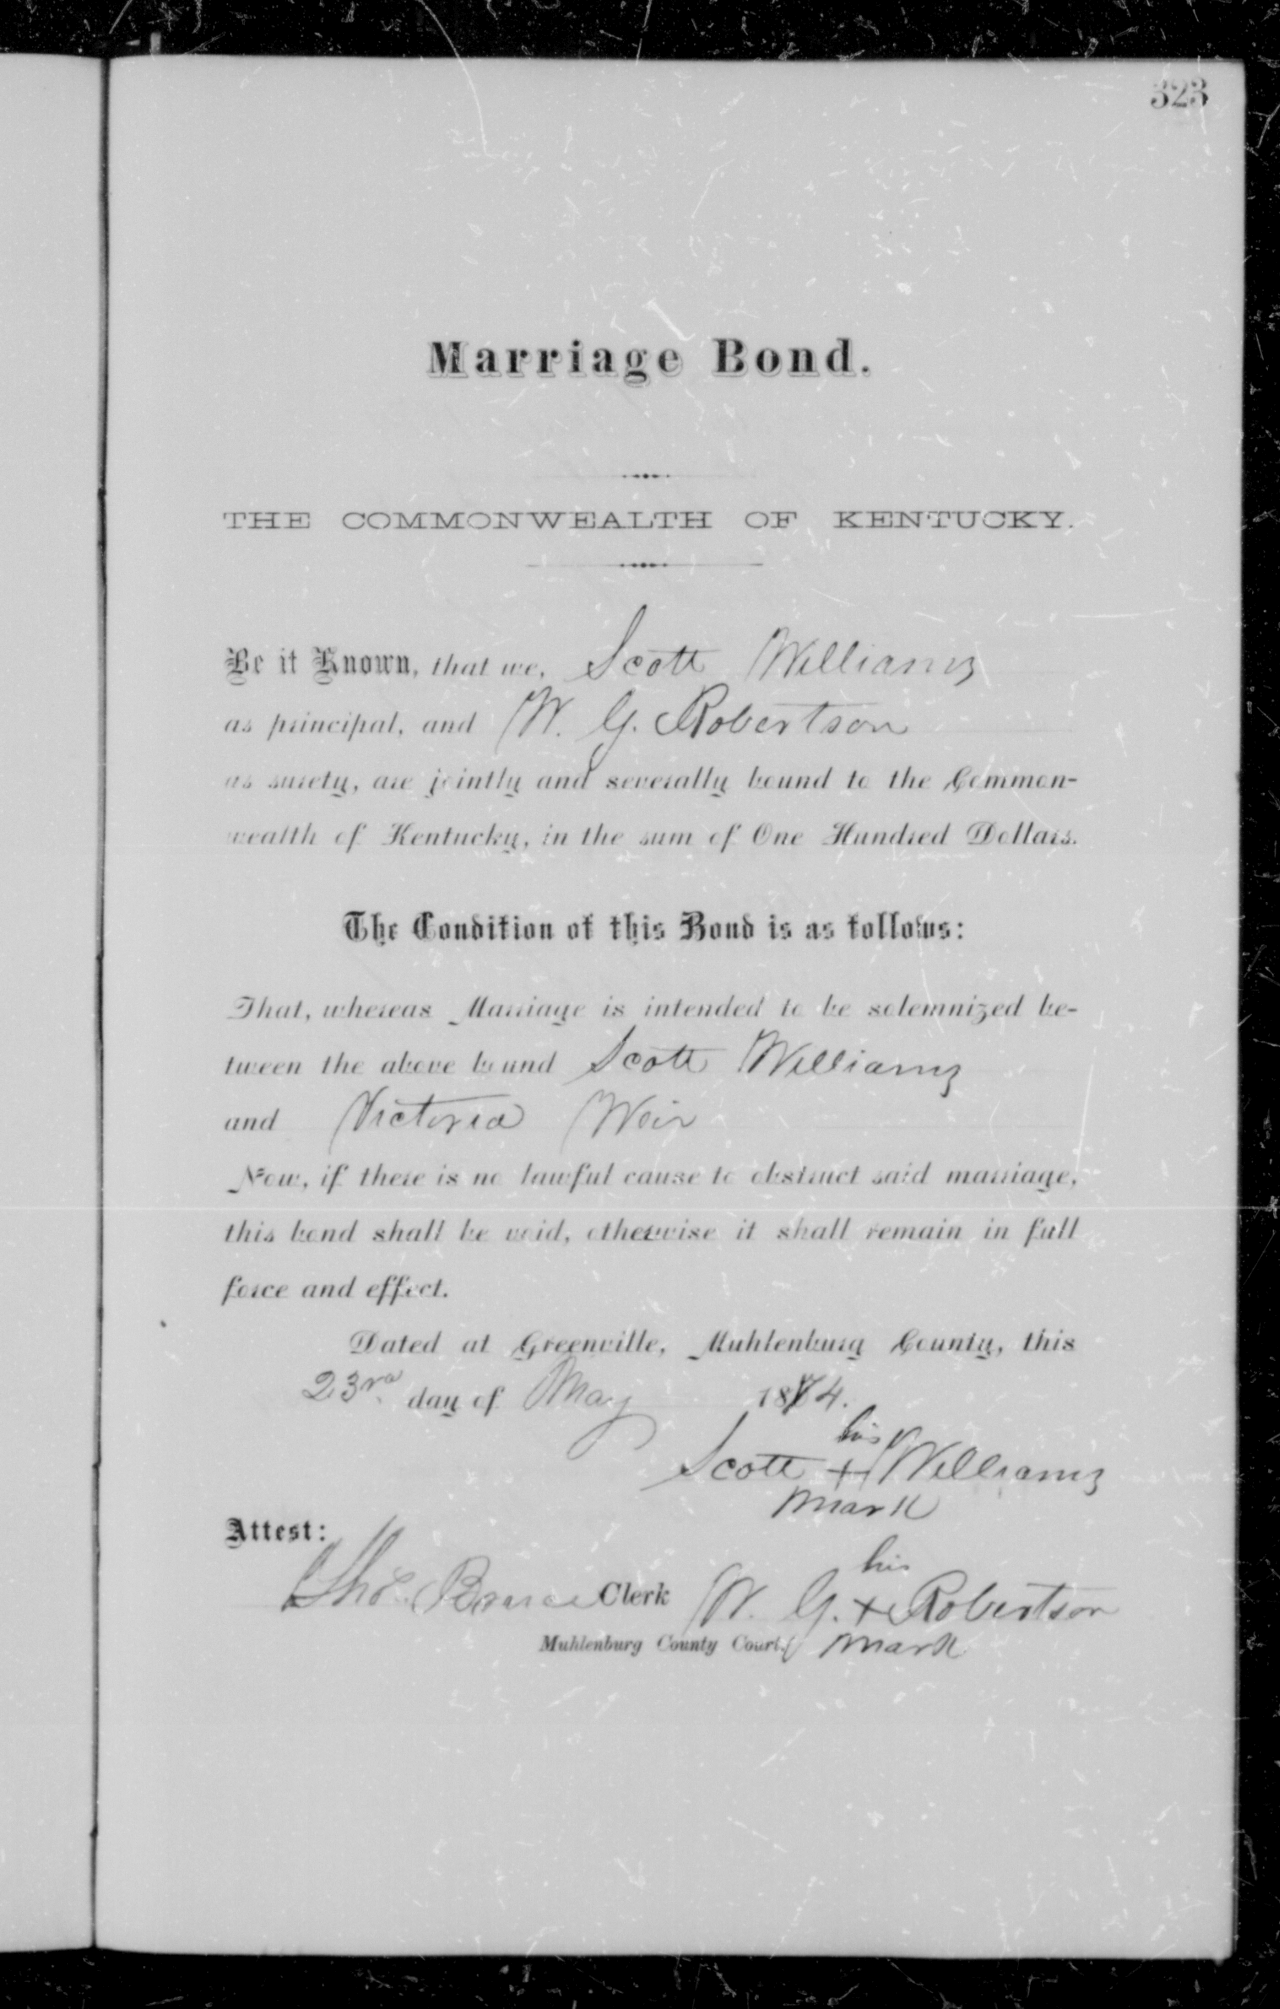 323
Marriage Bond.
THE COMMONWEALTH OF KENTUCKY.
Be it Known, that we, Scott Williams
as principal, and W. G. Robertson
as surety, are jointly and severally bound to the Common-
wealth of Kentucky, in the sum of One Hundred Dollars.
The Condition of this Bond is as follows:
That, whereas Marriage is intended to be solemnized be-
tween the above bound Scott Williams
and Victoria Weir
Now, if there is no lawful cause to obstruct said marriage,
this bond shall be void, otherwise it shall remain in full
force and effect.
Dated at Greenville, Muhlenburg County, this
23rd day of May 1874.
his
Scott + Williams
mark
Attest:
his
Tho. Bruce Clerk W. G. + Robertson
Muhlenburg County Court. mark